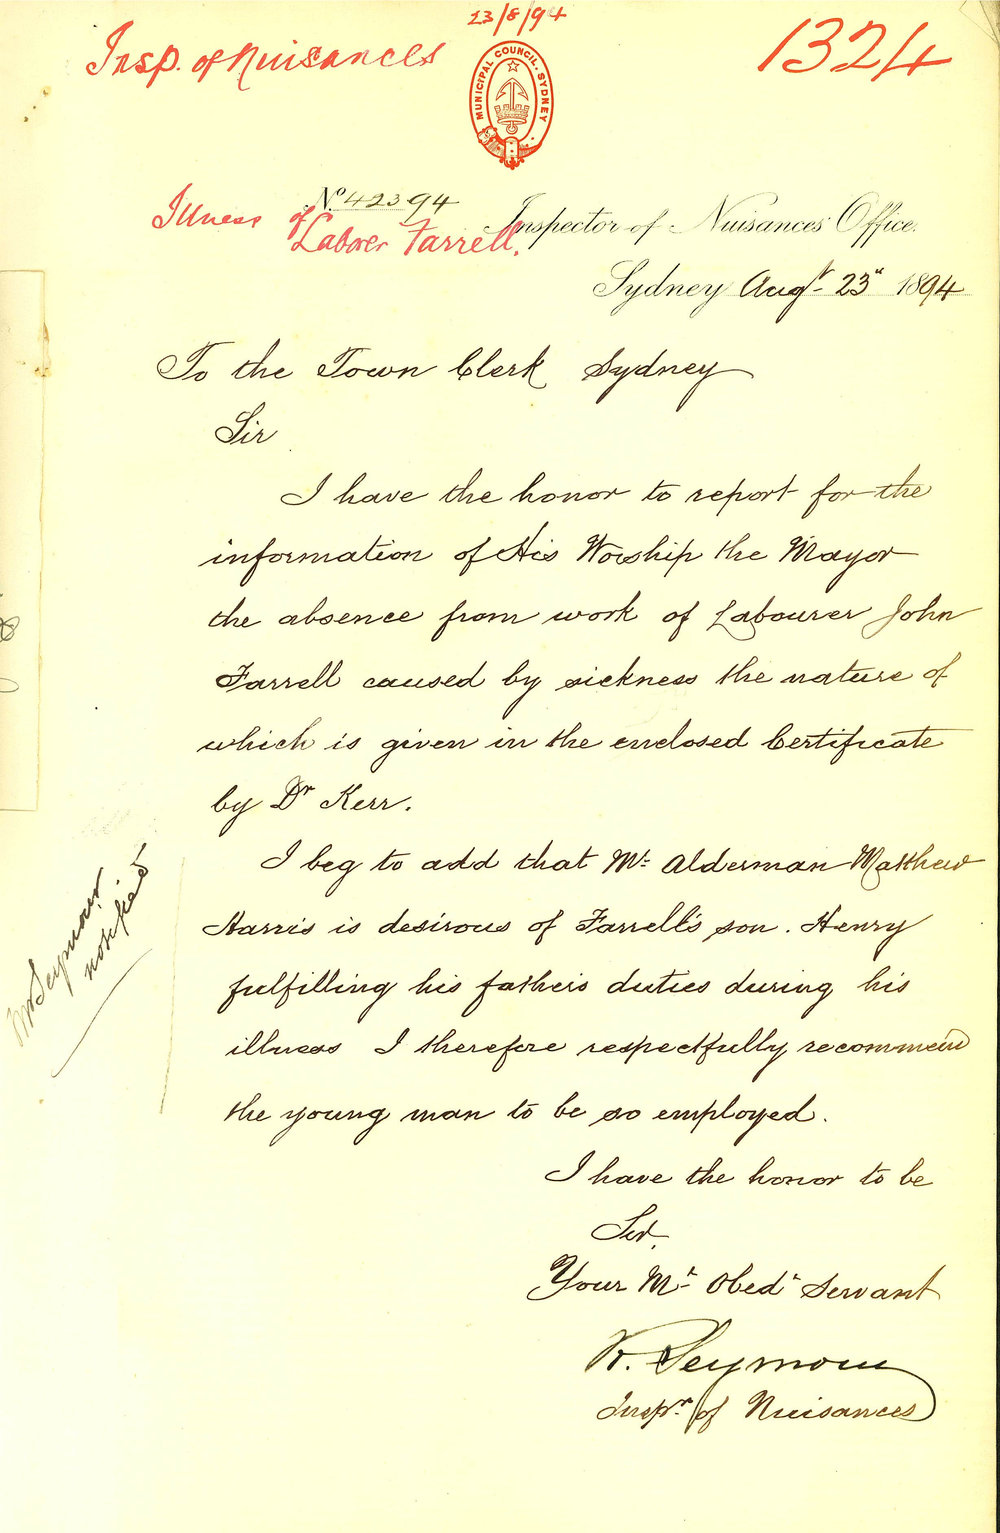 23/8/94
Insp. of Nuisances
1324
MUNICIPAL COUNCIL. SYDNEY
No. 423 94
Illness of
Laborer Farrell.
Inspector of Nuisances' Office.
Sydney Augt. 23d 1894
To the Town Clerk Sydney
Sir
I have the honor to report for the
information of His Worship the Mayor
the absence from work of Labourer John
Farrell caused by sickness the nature of
which is given in the enclosed Certificate
by Dr Kerr.
I beg to add that Mr. Alderman Matthew
Harris is desirous of Farrell's son. Henry
fulfilling his father's duties during his
illness I therefore respectfully recommend
the young man to be so employed.
I have the honor to be
Sir.
Your Mt Obedt Servant
R. Seymour
Inspr. of Nuisances
Mr Seymour
notified